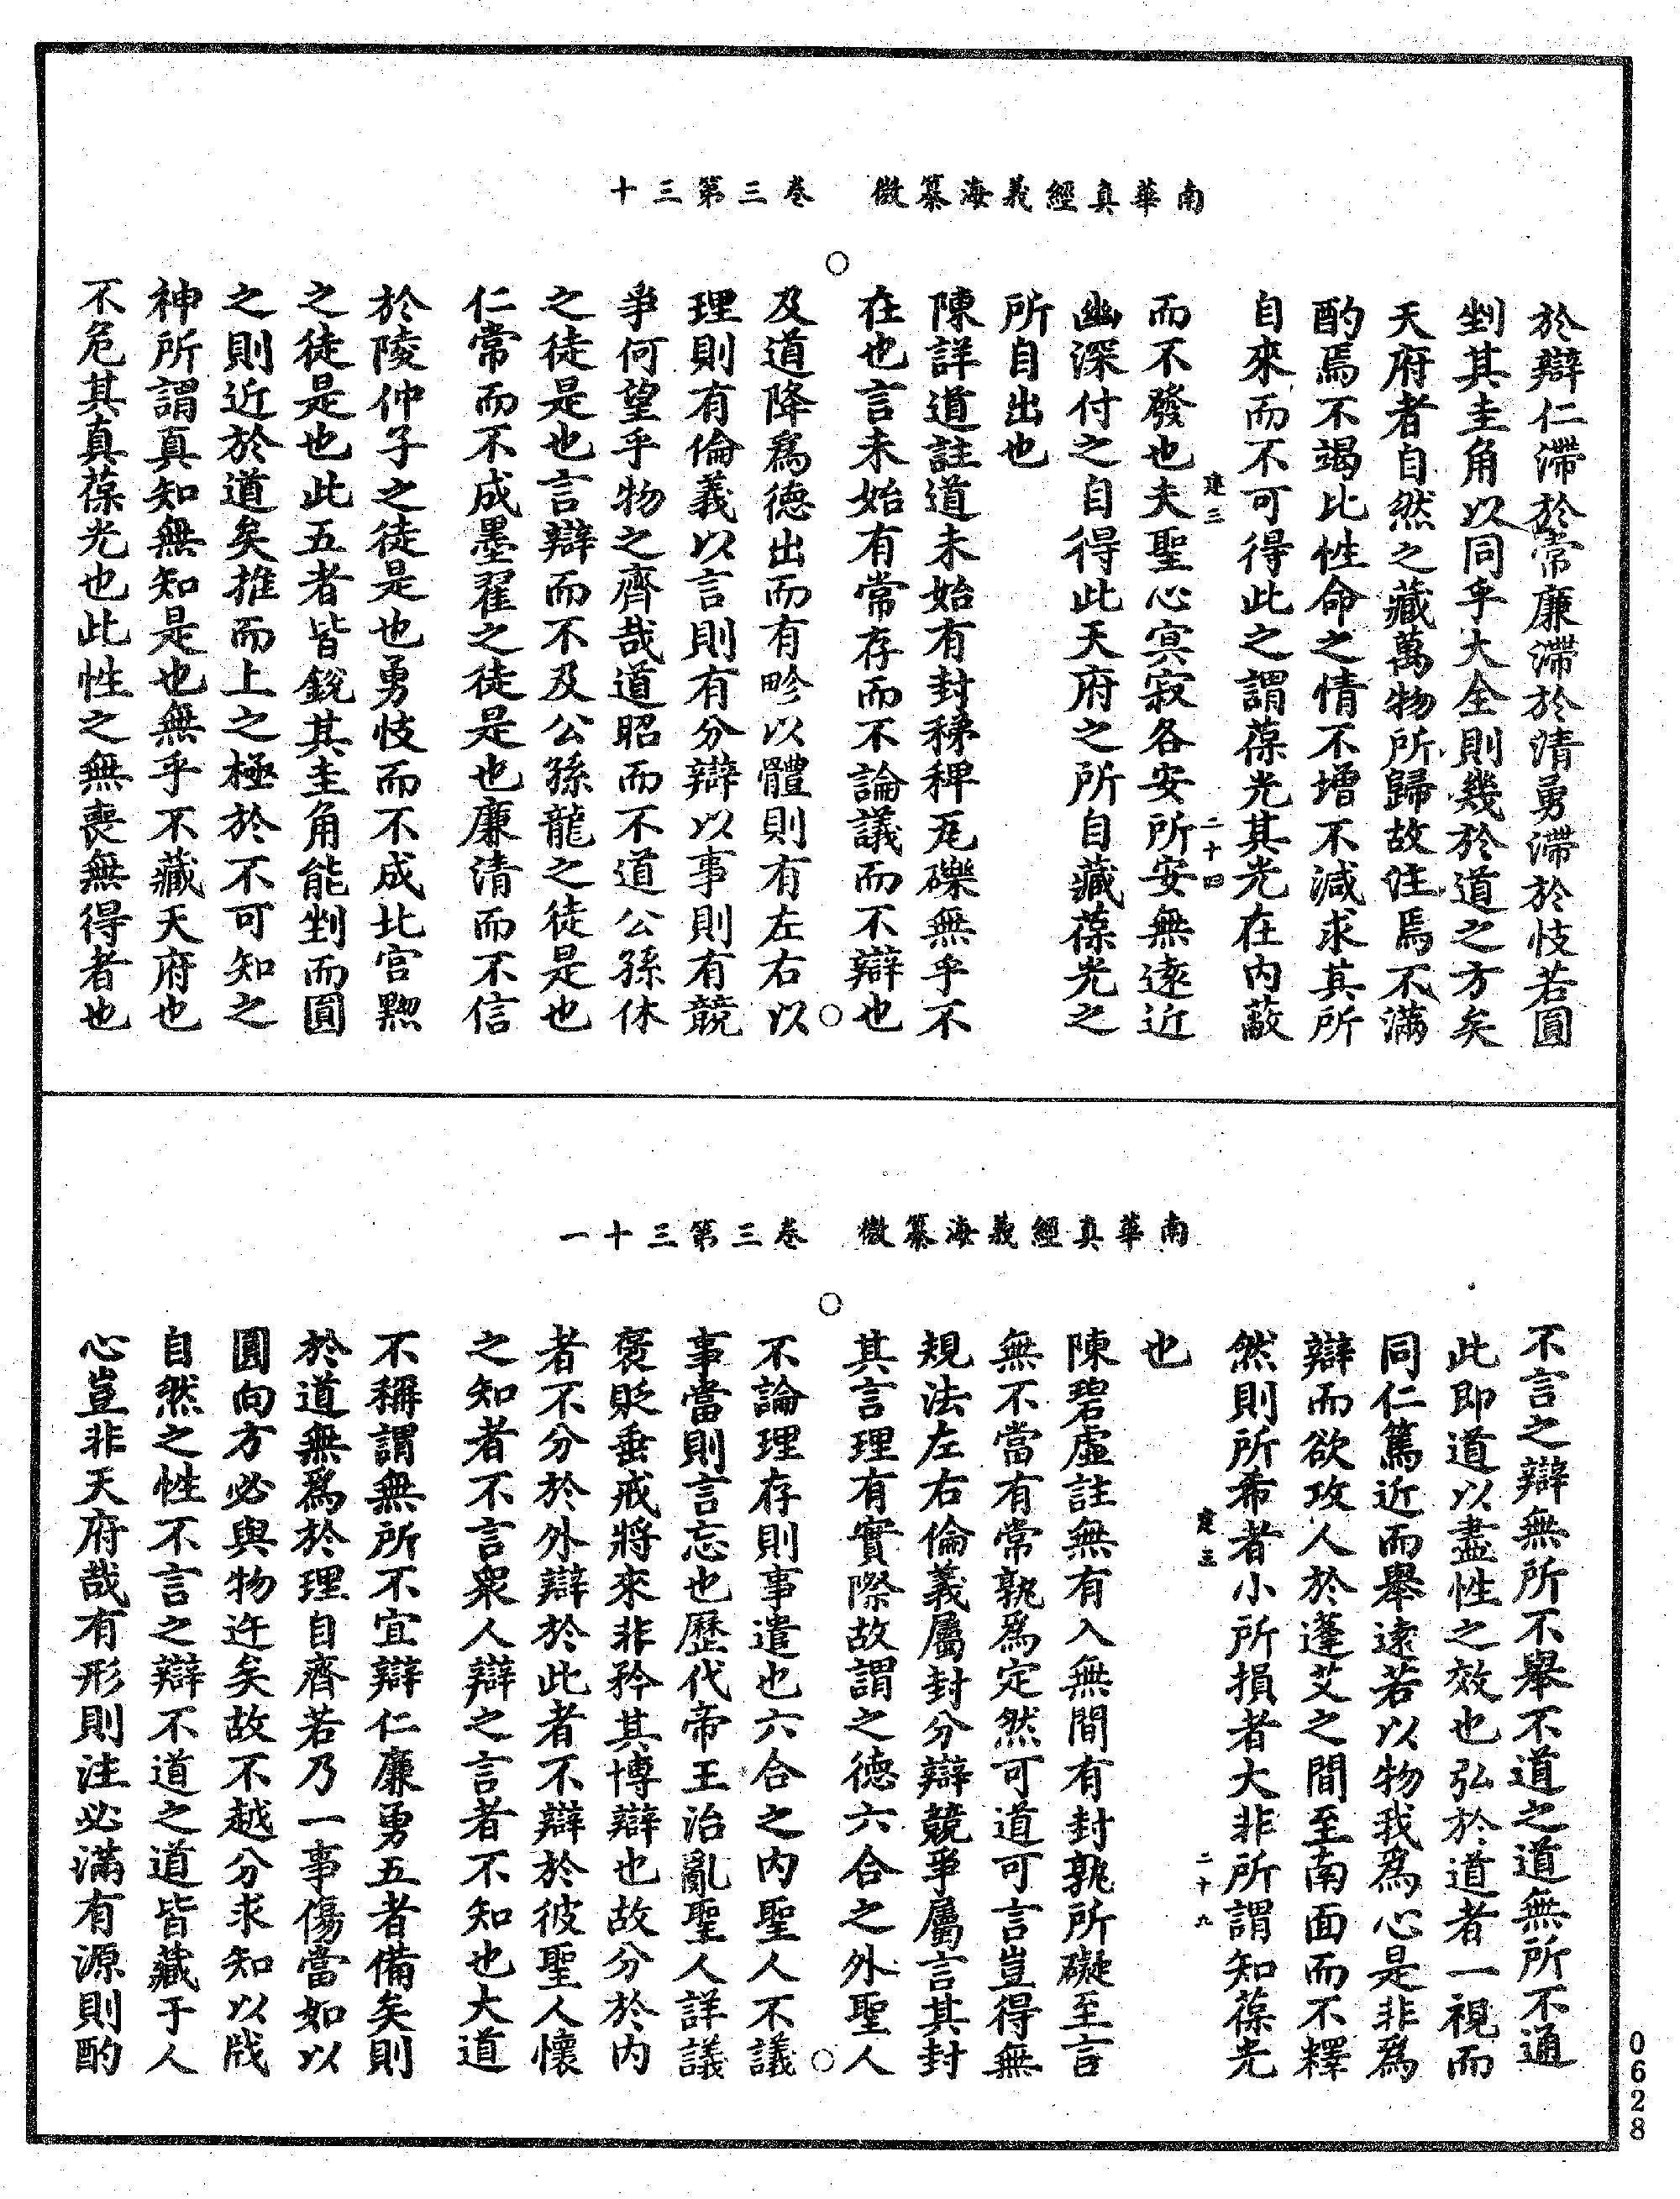 南華真經義海纂微　卷三第三十
於辯仁滯於常廉滯於清勇滯於忮若圓
剉其圭角以同乎大全則幾於道之方矣
天府者自然之藏萬物所歸故注焉不滿
酌焉不竭比性命之情不增不減求其所
自來而不可得此之謂葆光其光在內蔽
建三　二十四
而不發也夫聖心冥寂各安所安無遠近
幽深付之自得此天府之所自藏葆光之
所自出也
陳詳道註道未始有封稊稗瓦礫無乎不
在也言未始有常存而不論議而不辯也
及道降為德出而有畛以體則有左右以
理則有倫義以言則有分辯以事則有競
爭何望乎物之齊哉道昭而不道公孫休
之徒是也言辯而不及公孫龍之徒是也
仁常而不成墨翟之徒是也廉清而不信
於陵仲子之徒是也勇忮而不成北宮黝
之徒是也此五者皆銳其圭角能剉而圓
之則近於道矣推而上之極於不可知之
神所謂真知無知是也無乎不藏天府也
不危其真葆光也此性之無喪無得者也
南華真經義海纂微　卷三第三十一
不言之辯無所不舉不道之道無所不通
此即道以盡性之效也弘於道者一視而
同仁篤近而舉遠若以物我為心是非為
辯而欲攻人於蓬艾之間至南面而不釋
然則所希者小所損者大非所謂知葆光
建三　二十九
也
陳碧虛註無有入無間有封孰所礙至言
無不當有常孰為定然可道可言豈得無
規法左右倫義屬封分辯競爭屬言其封
其言理有實際故謂之德六合之外聖人
不論理存則事遣也六合之內聖人不議
事當則言忘也歷代帝王治亂聖人詳議
褒貶垂戒將來非矜其博辯也故分於內
者不分於外辯於此者不辯於彼聖人懷
之知者不言眾人辯之言者不知也大道
不稱謂無所不宜辯仁廉勇五者備矣則
於道無為於理自齊若乃一事傷當如以
圓向方必與物迕矣故不越分求知以戕
自然之性不言之辯不道之道皆藏于人
心豈非天府哉有形則注必滿有源則酌
0628